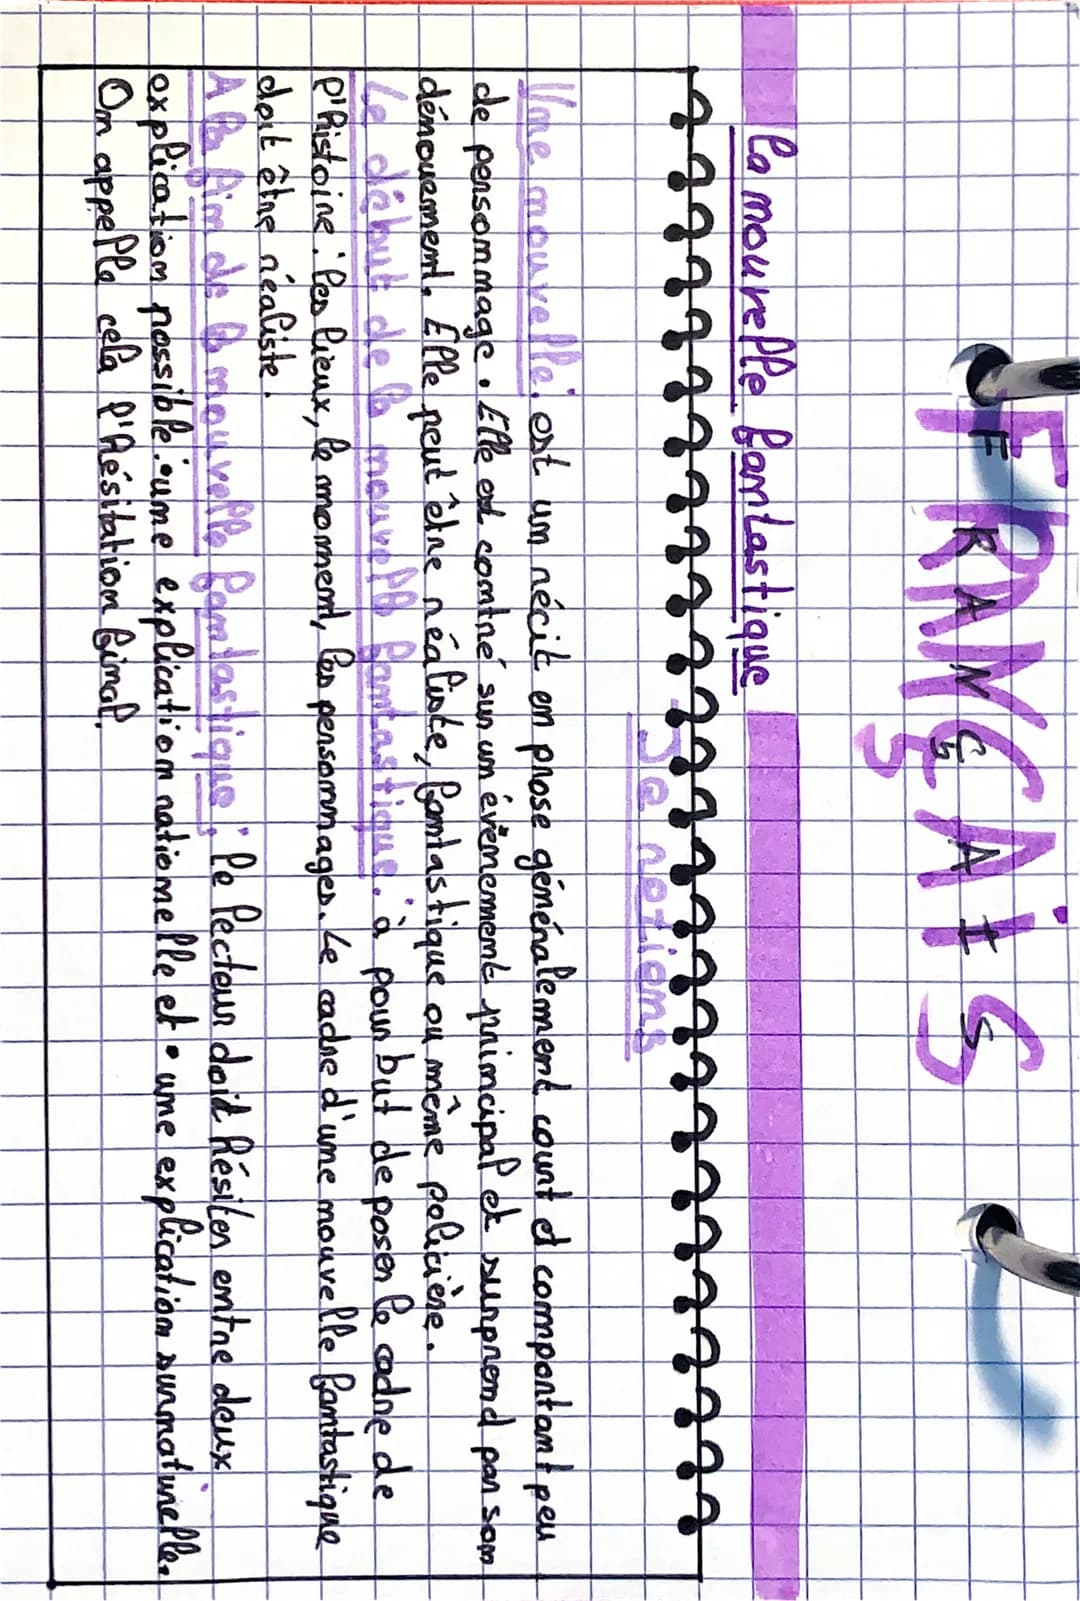 FRANÇAIS
FRANÇAIS
la nouvelle fantastique
Je retiens
Une nouvelle: est un récit en prose généralement court et comportant peu
de personnage. Elle est contré sur un évènement principal et surprend par son
dénouement. Elle peut être réaliste, fantastique ou même policière.
Le début de la nouvelle fantastique: à pour but de poser le cadre de
l'histoire: les lieux, le moment, les personnages. Le cadre d'une nouvelle fantastique
doit être réaliste.
A la fin de la nouvelle fantastique: le lecteur doit hésiter entre deux
explication possible: • une explication rationelle et • une explication surnaturelle.
On appelle cela l'hésitation final.